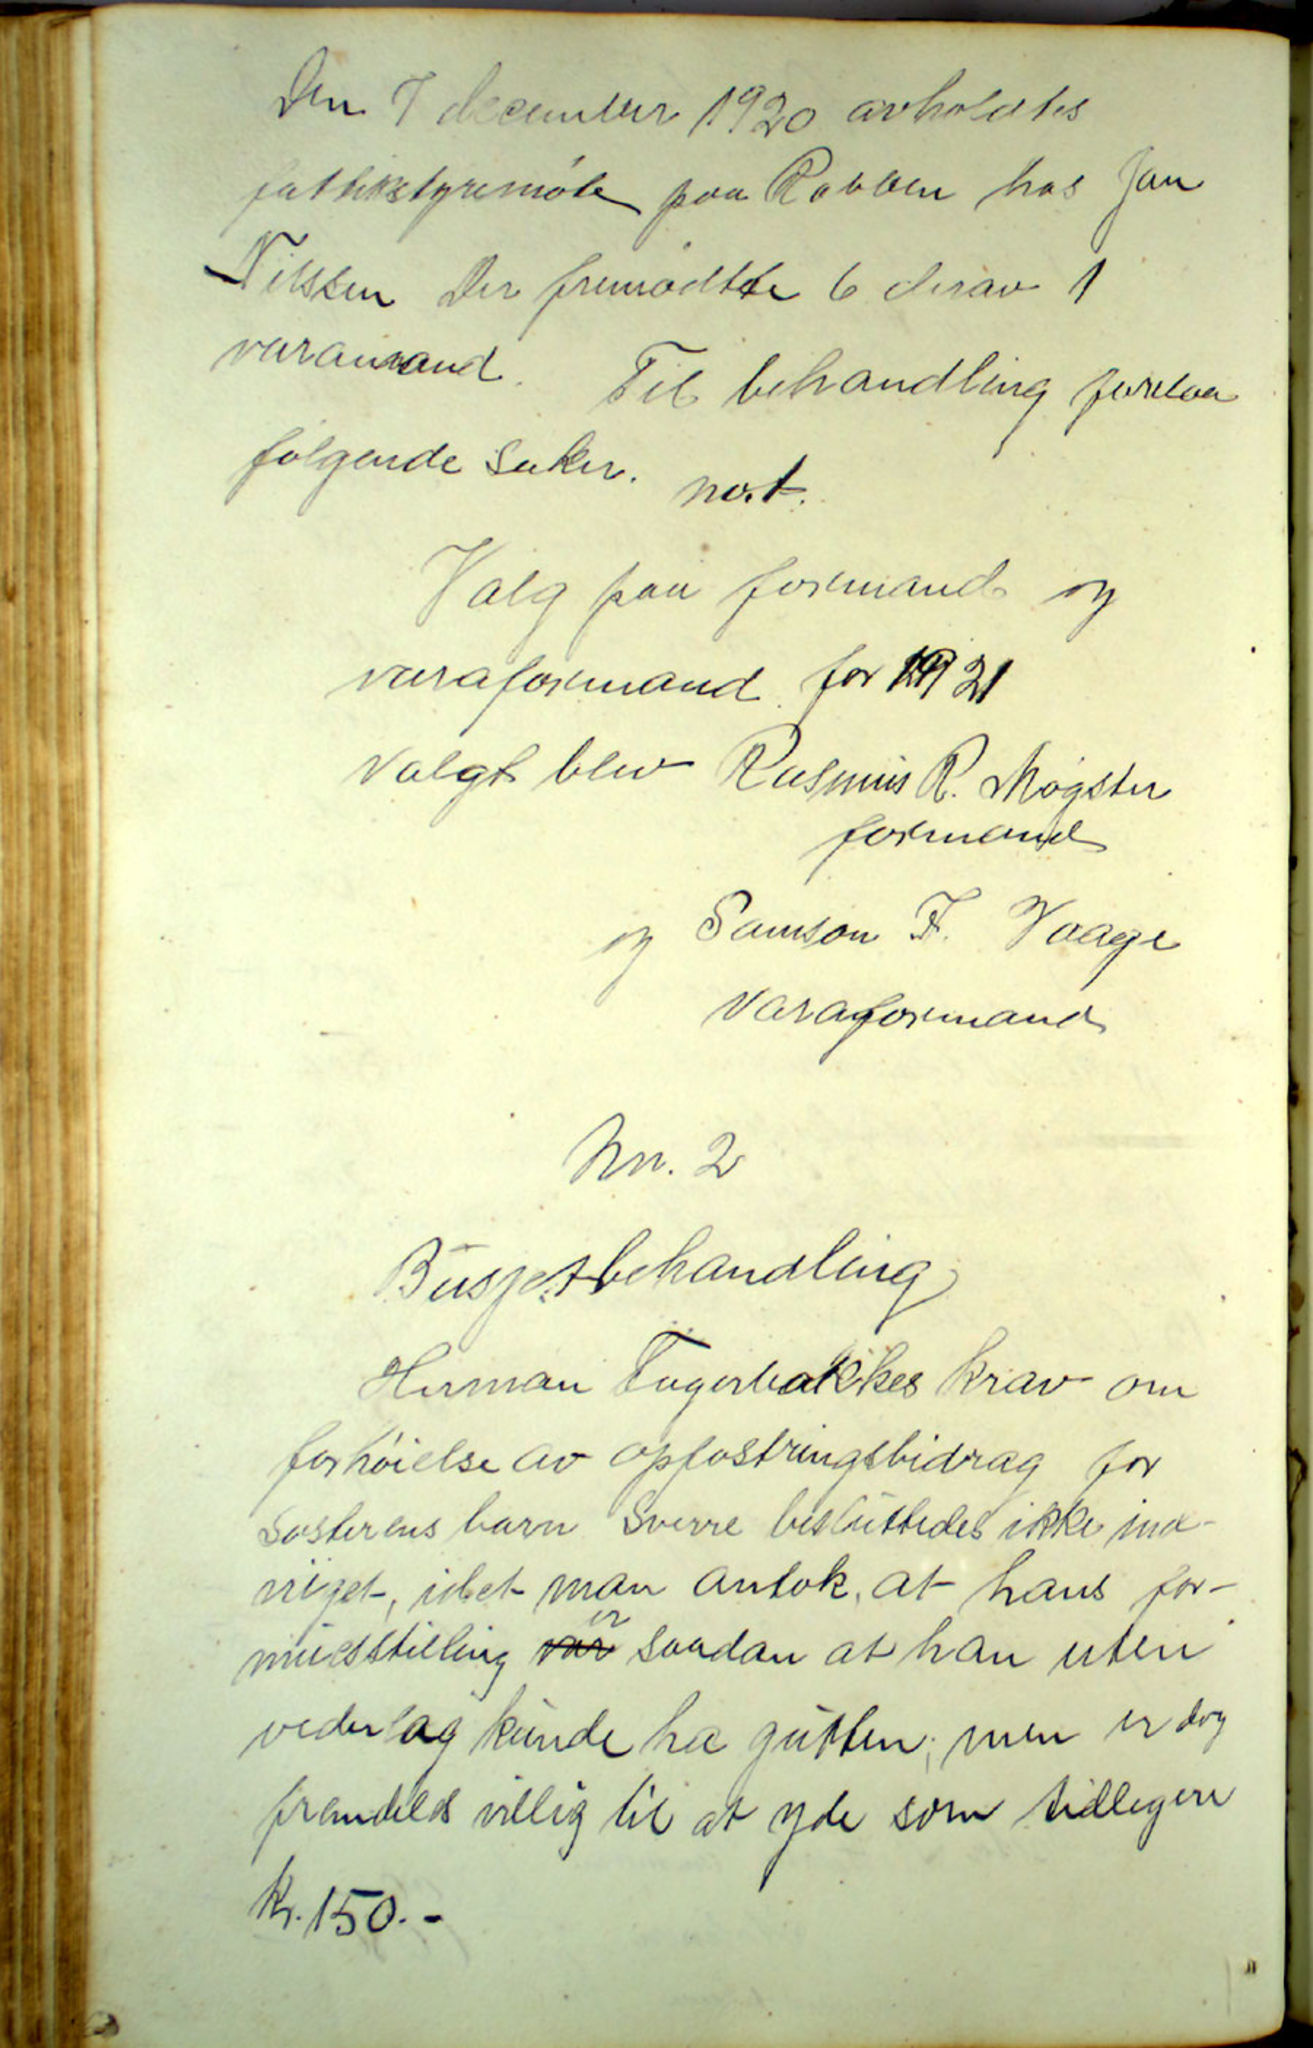 Den 7 december 1920 avholdtes
fattikstyremöte paa Rabben hos Jan
Nilssen Der fremödtte 6 derav 1
varamand. Til behandling forelaa
følgende saker. no. 1.
Valg paa formand og
varaformand for 1921
Valgt blev Rasmus R. Møgster
formand
og Samson F. Vaage
Varaformand
Nr. 2
Busjetbehandling
Herman Fagerbakkes krav om
forhöielse av opfostringsbidrag for
søsterens barn Sverre besluttedes ikke ind-
vilget, idet man antok, at hans for-
muesstilling var er saadan at han uten
vederlag kunde ha gutten, men er dog
fremdeles villig til at yde som tidligere
Kr. 150.-